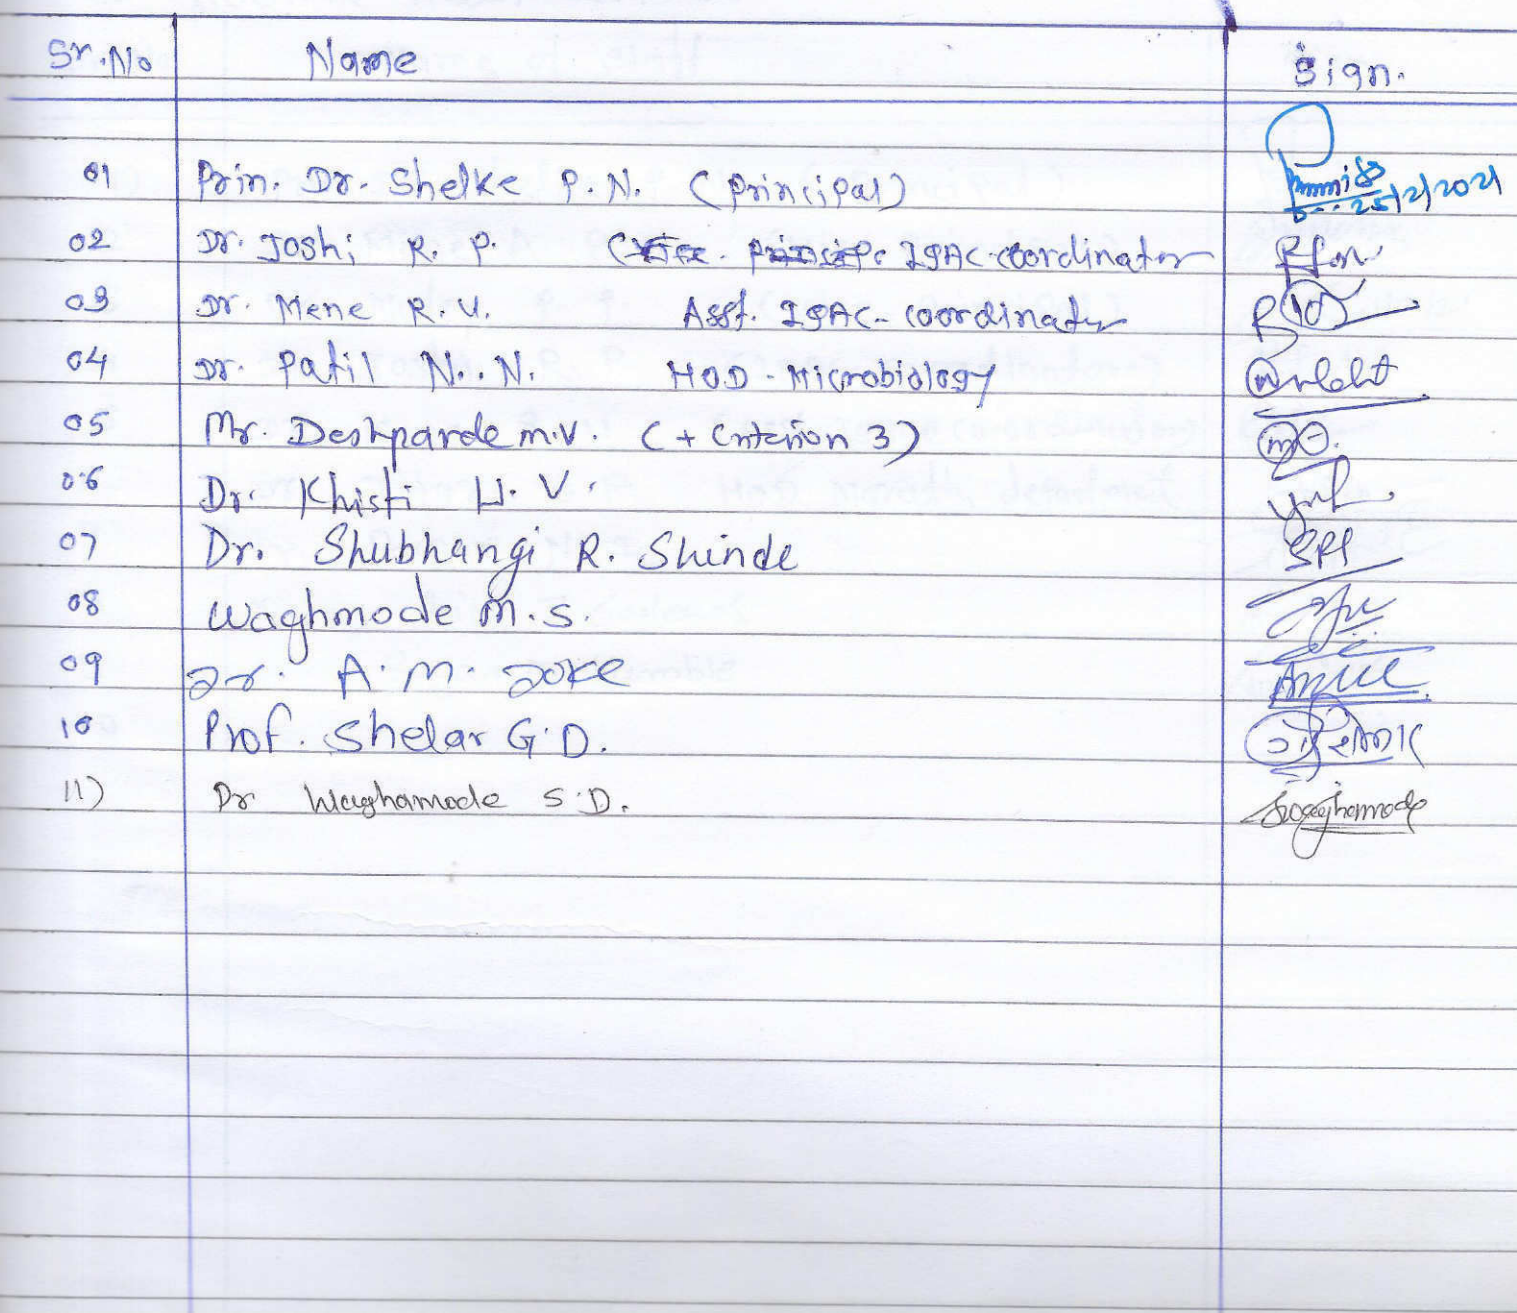 Sr.No Name Sign.
01 Prin. Dr. Shelke P.N. (Principal) 25/2/2021
02 Dr. Joshi R. P. IQAC-coordinator
03 Dr. Mene R.V. Asst. IQAC-coordinator
04 Dr. Patil N.N. HOD-Microbiology
05 Mr. Deshpande M.V. (+ Criterion 3)
06 Dr. Khisti U. V.
07 Dr. Shubhangi R. Shinde
08 Waghmode M.S.
09 Dr. A.M. Doke
10 Prof. Shelar G.D.
11) Dr Waghamode S.D. Waghamode